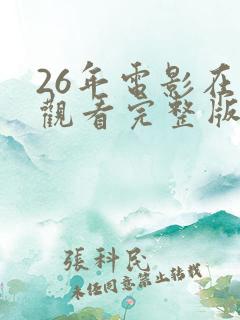 26年電影在
觀看完整版
張科民
未经同意禁止转载